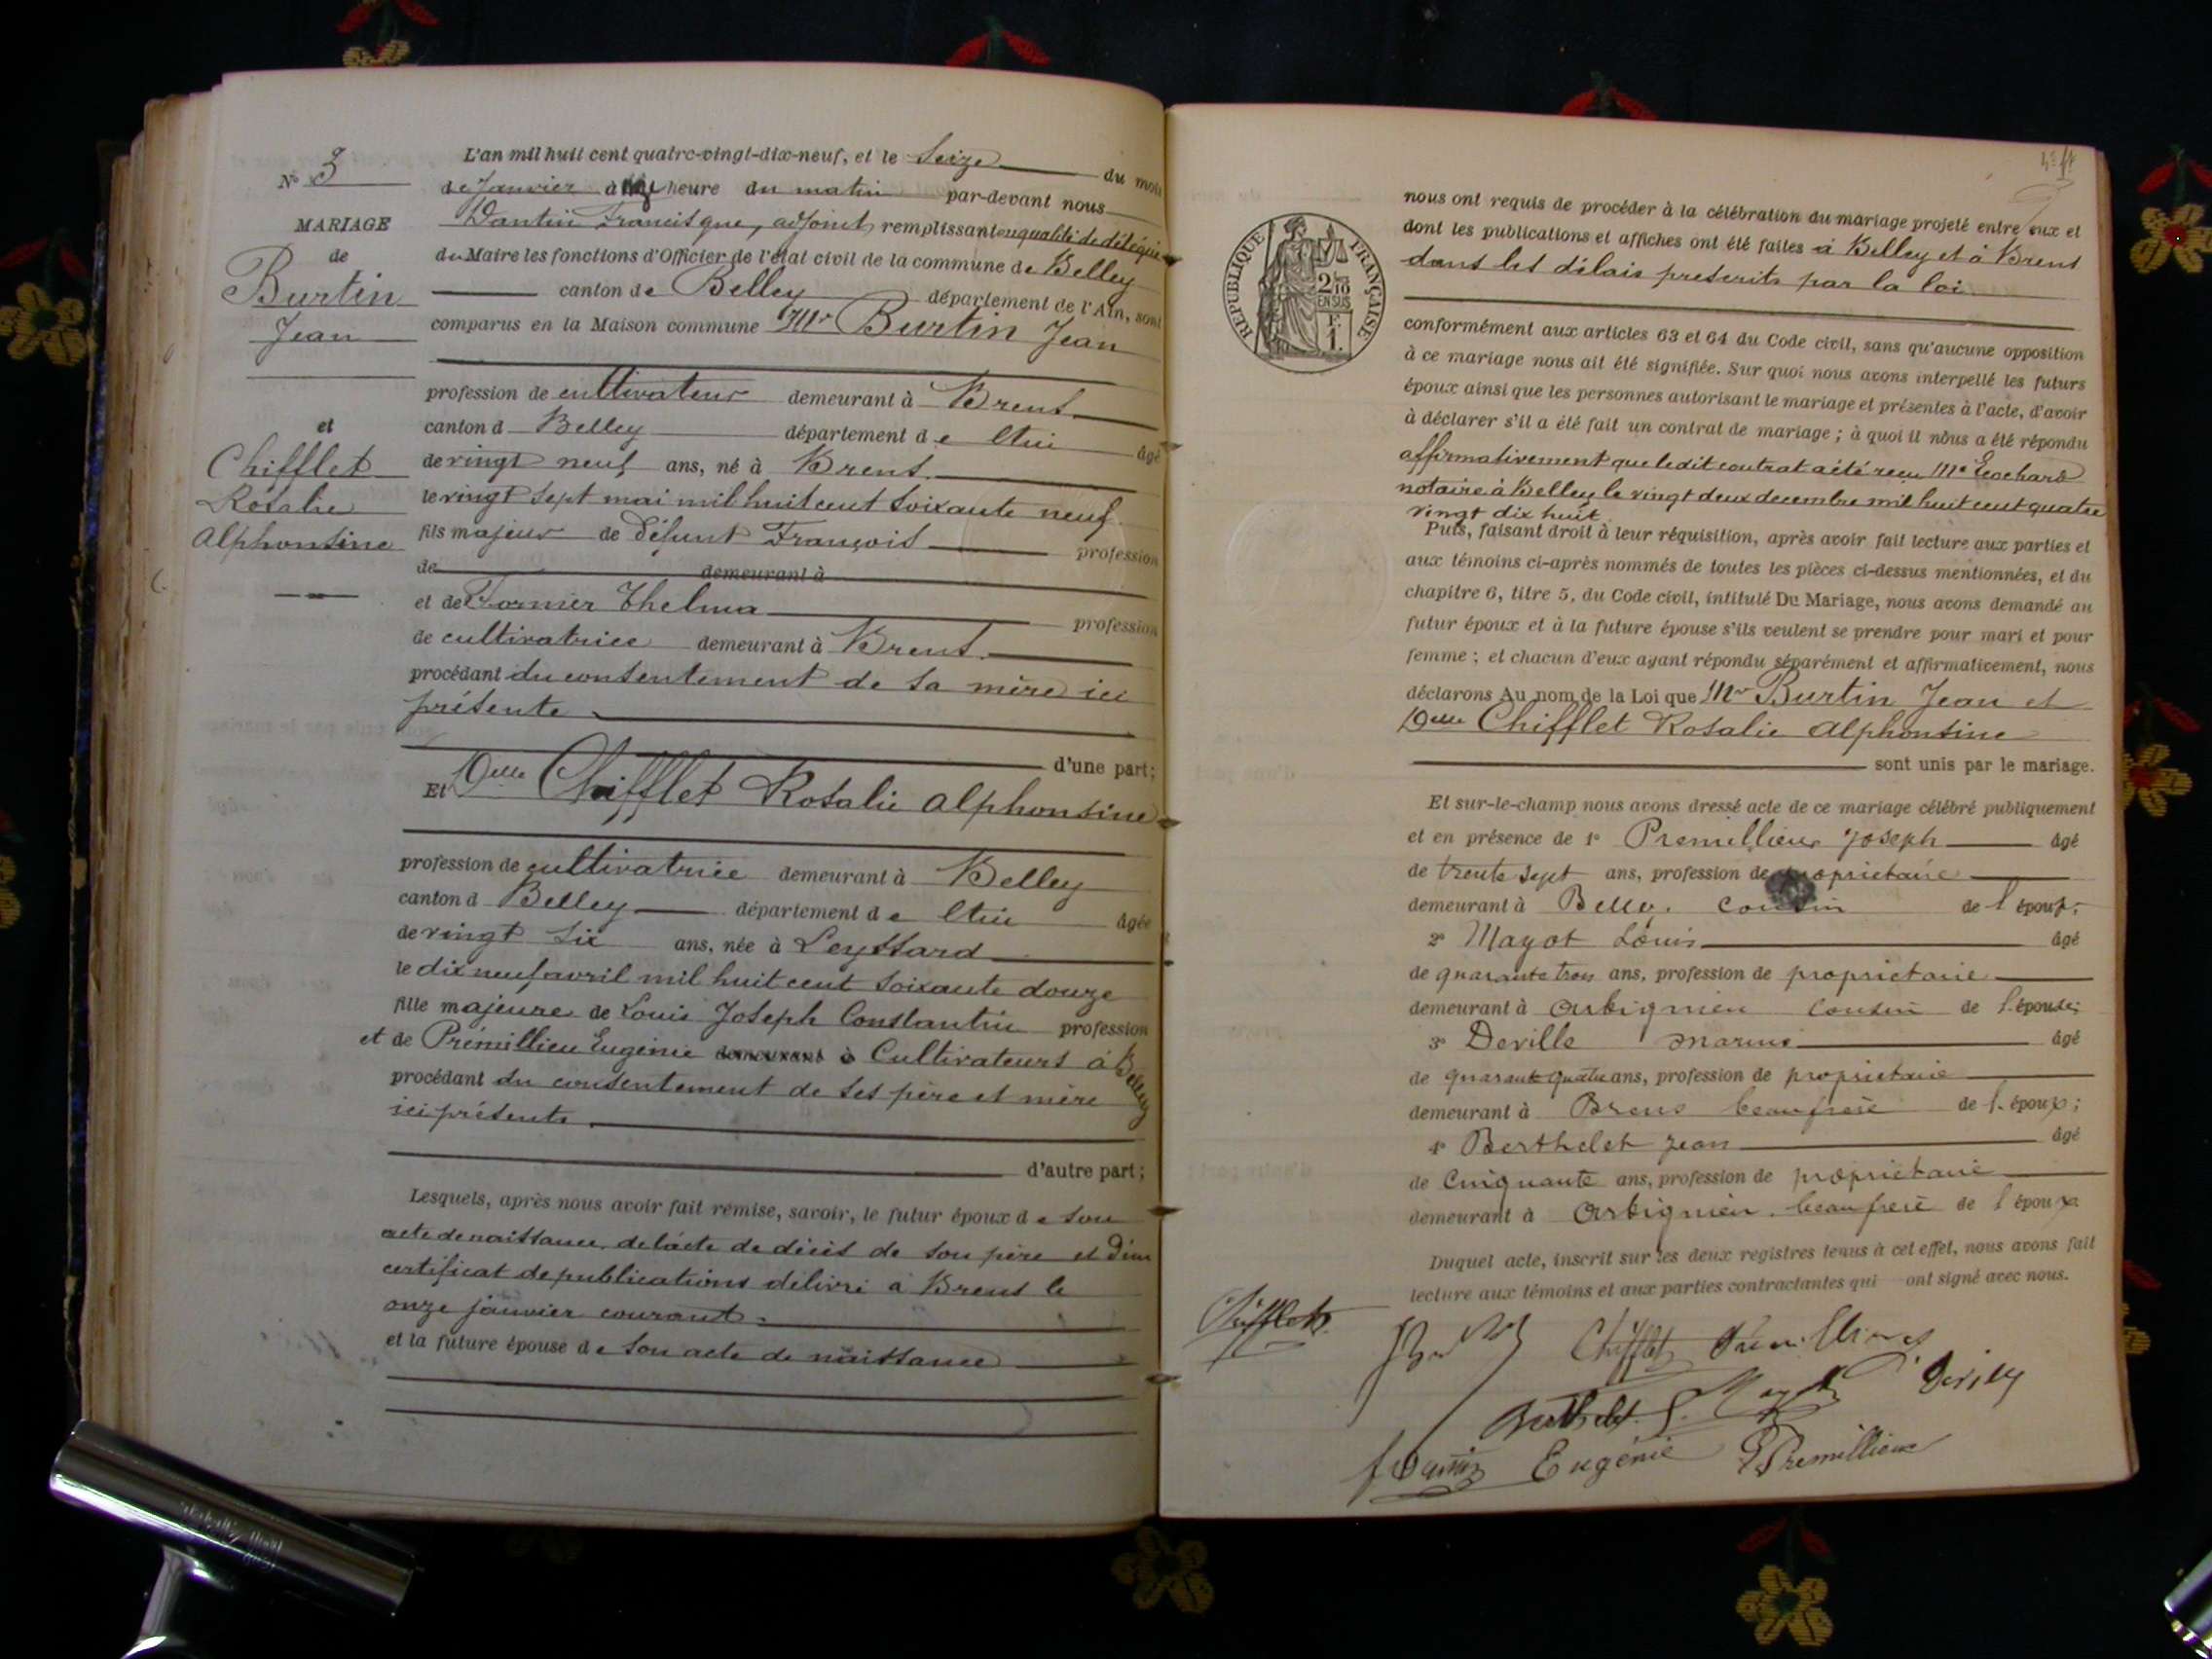 N° 3
MARIAGE
de
Burtin
Jean
et
Chifflet
Rosalie
Alphonsine
L'an mil huit cent quatre-vingt-dix-neuf, et le seize du mois
de Janvier à heure du matin par-devant nous
Dantin Francisque, adjoint, remplissant en qualité de délégué
du Maire les fonctions d'Officier de l'état civil de la commune de Belley
canton de Belley département de l'Ain, sont
comparus en la Maison commune Mr Burtin Jean
profession de cultivateur demeurant à Brens
canton d Belley département de Ain âgé
de vingt neuf ans, né à Brens
le vingt sept mai mil huit cent soixante neuf
fils majeur de défunt François profession
de demeurant à
et de Fornier Thelma profession
de cultivatrice demeurant à Brens
procédant du consentement de sa mère ici
présente
d'une part;
Et Delle Chifflet Rosalie Alphonsine
profession de cultivatrice demeurant à Belley
canton d Belley département de Ain âgée
de vingt six ans, née à Leyssard
le dix neuf avril mil huit cent soixante douze
fille majeure de Louis Joseph Constantin profession
et de Prémillieu Eugénie demeurant à Cultivateurs à Belley
procédant du consentement de ses père et mère
ici présents
d'autre part;
Lesquels, après nous avoir fait remise, savoir, le futur époux de son
acte de naissance, de l'acte de décès de son père et d'un
certificat de publications délivré à Brens le
onze janvier courant
et la future épouse de son acte de naissance
RÉPUBLIQUE FRANÇAISE
2/10
EN SUS
F.
1.
nous ont requis de procéder à la célébration du mariage projeté entre eux et
dont les publications et affiches ont été faites à Belley et à Brens
dans les délais prescrits par la loi
conformément aux articles 63 et 64 du Code civil, sans qu'aucune opposition
à ce mariage nous ait été signifiée. Sur quoi nous avons interpellé les futurs
époux ainsi que les personnes autorisant le mariage et présentes à l'acte, d'avoir
à déclarer s'il a été fait un contrat de mariage; à quoi il nous a été répondu
affirmativement que ledit contrat a été reçu Me
notaire à Belley le vingt deux decembre mil huit cent quatre
vingt dix huit
Puis, faisant droit à leur réquisition, après avoir fait lecture aux parties et
aux témoins ci-après nommés de toutes les pièces ci-dessus mentionnées, et du
chapitre 6, titre 5, du Code civil, intitulé Du Mariage, nous avons demandé au
futur époux et à la future épouse s'ils veulent se prendre pour mari et pour
femme; et chacun d'eux ayant répondu séparément et affirmativement, nous
déclarons Au nom de la Loi que Mr Burtin Jean et
Delle Chifflet Rosalie Alphonsine
sont unis par le mariage.
Et sur-le-champ nous avons dressé acte de ce mariage célébré publiquement
et en présence de 1° Premillieu Joseph âgé
de trente sept ans, profession de propriétaire
demeurant à Belley. cousin de l'époux;
2° Mayot Louis âgé
de quarante trois ans, profession de propriétaire
demeurant à Arbignieu cousin de l'épouse;
3° Deville Marius âgé
de quarante quatre ans, profession de propriétaire
demeurant à Brens beaufrère de l'époux;
4° Berthelet Jean âgé
de cinquante ans, profession de propriétaire
demeurant à Arbignieu. beaufrère de l'époux
Duquel acte, inscrit sur les deux registres tenus à cet effet, nous avons fait
lecture aux témoins et aux parties contractantes qui ont signé avec nous.
Chifflet
Chifflet Premillieu
Berthelet L. Mayot Deville
Eugénie Premillieu